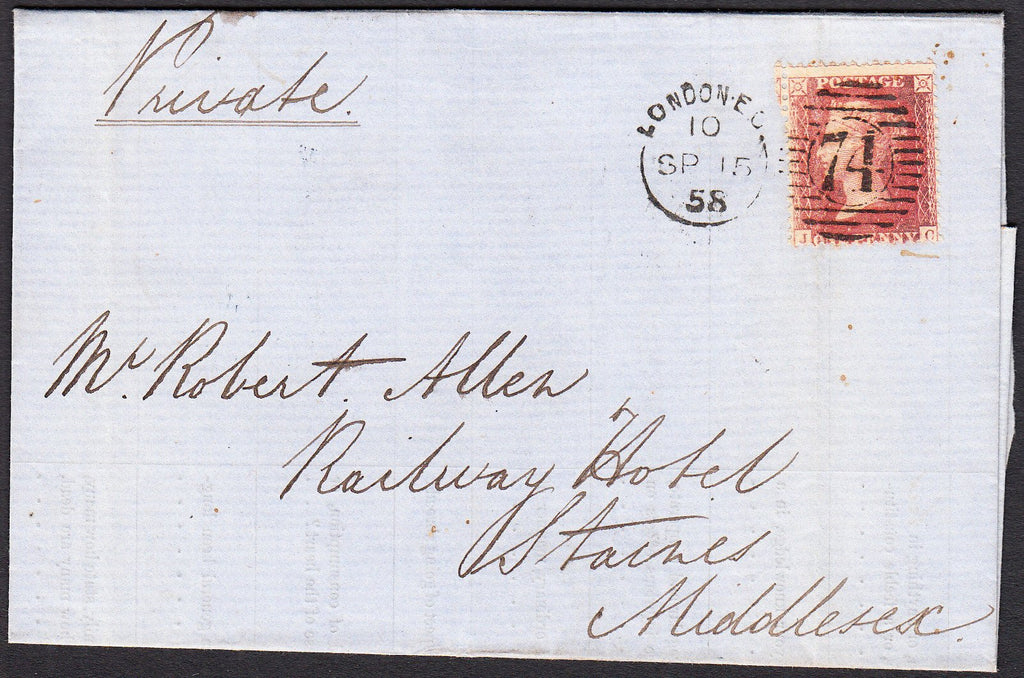 Private.
LONDON·E.C.
10
SP 15
58
POSTAGE
74
J C
Mr. Robert Allen
Railway Hotel
Staines
Middlesex.